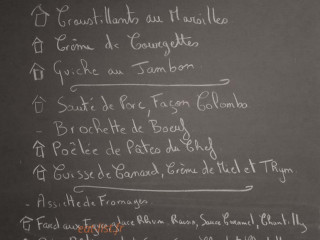 Croustillants au Maroilles
Crème de Courgettes
Quiche au Jambon
Sauté de Porc, Façon Colombo
- Brochette de Boeuf
Poêlée de Pâtes du Chef
Cuisse de Canard, Crème de Miel et Thym
- Assiette de Fromages
Fard aux Figues, glace Rhum Raisin, Sauce Caramel, Chantilly